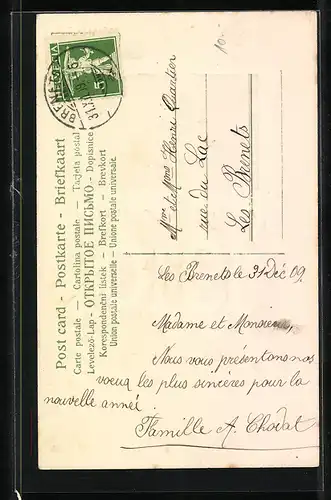 Post card - Postkarte - Briefkaart
Carte postale — Cartolina postale — Tarjeta postal
Levelező-Lap - ОТКРЫТОЕ ПИСЬМО - Dopisnice
Korespondenční listek - Brefkort - Brevkort
Union postale universelle — Unione postale universale
HELVETIA
5
BRENETS
31.XII.09
10
Mme et Mr Henri Quartier
rue du Lac
Les Brenets
Les Brenets le 31 déc 09.
Madame et Monsieur,
Nous vous présentons nos
voeux les plus sincères pour la
nouvelle année.
Famille A. Chodat